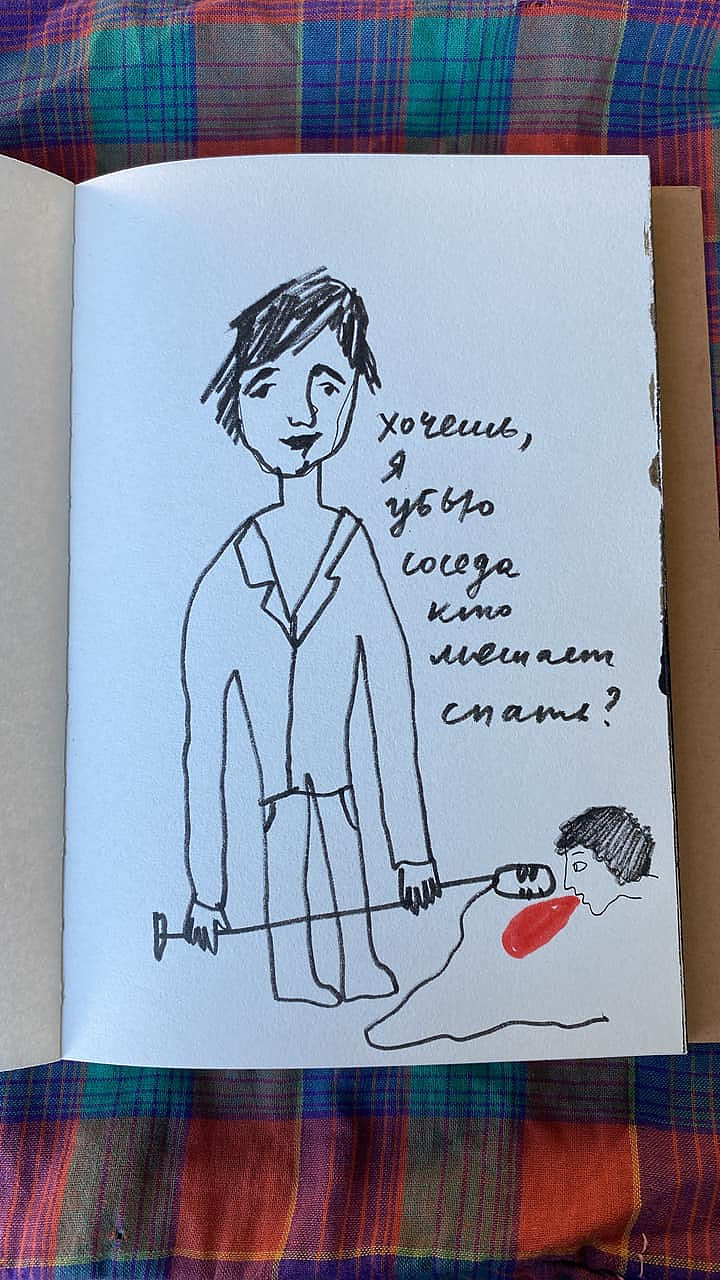 хочешь,
я
убью
соседа
кто
мешает
спать?